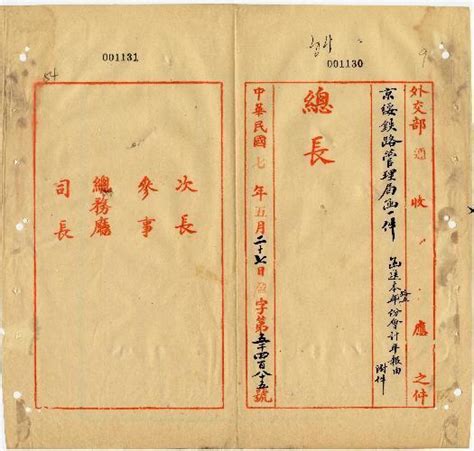 001130
9
外交部 收 應 之件
京綏鉄路管理局函一件
函送本年份會計年報由
附件
總長
中華民國七年五月二十七日 字第五千四百八十五號
001131
54
次長
參事
總務廳
司長